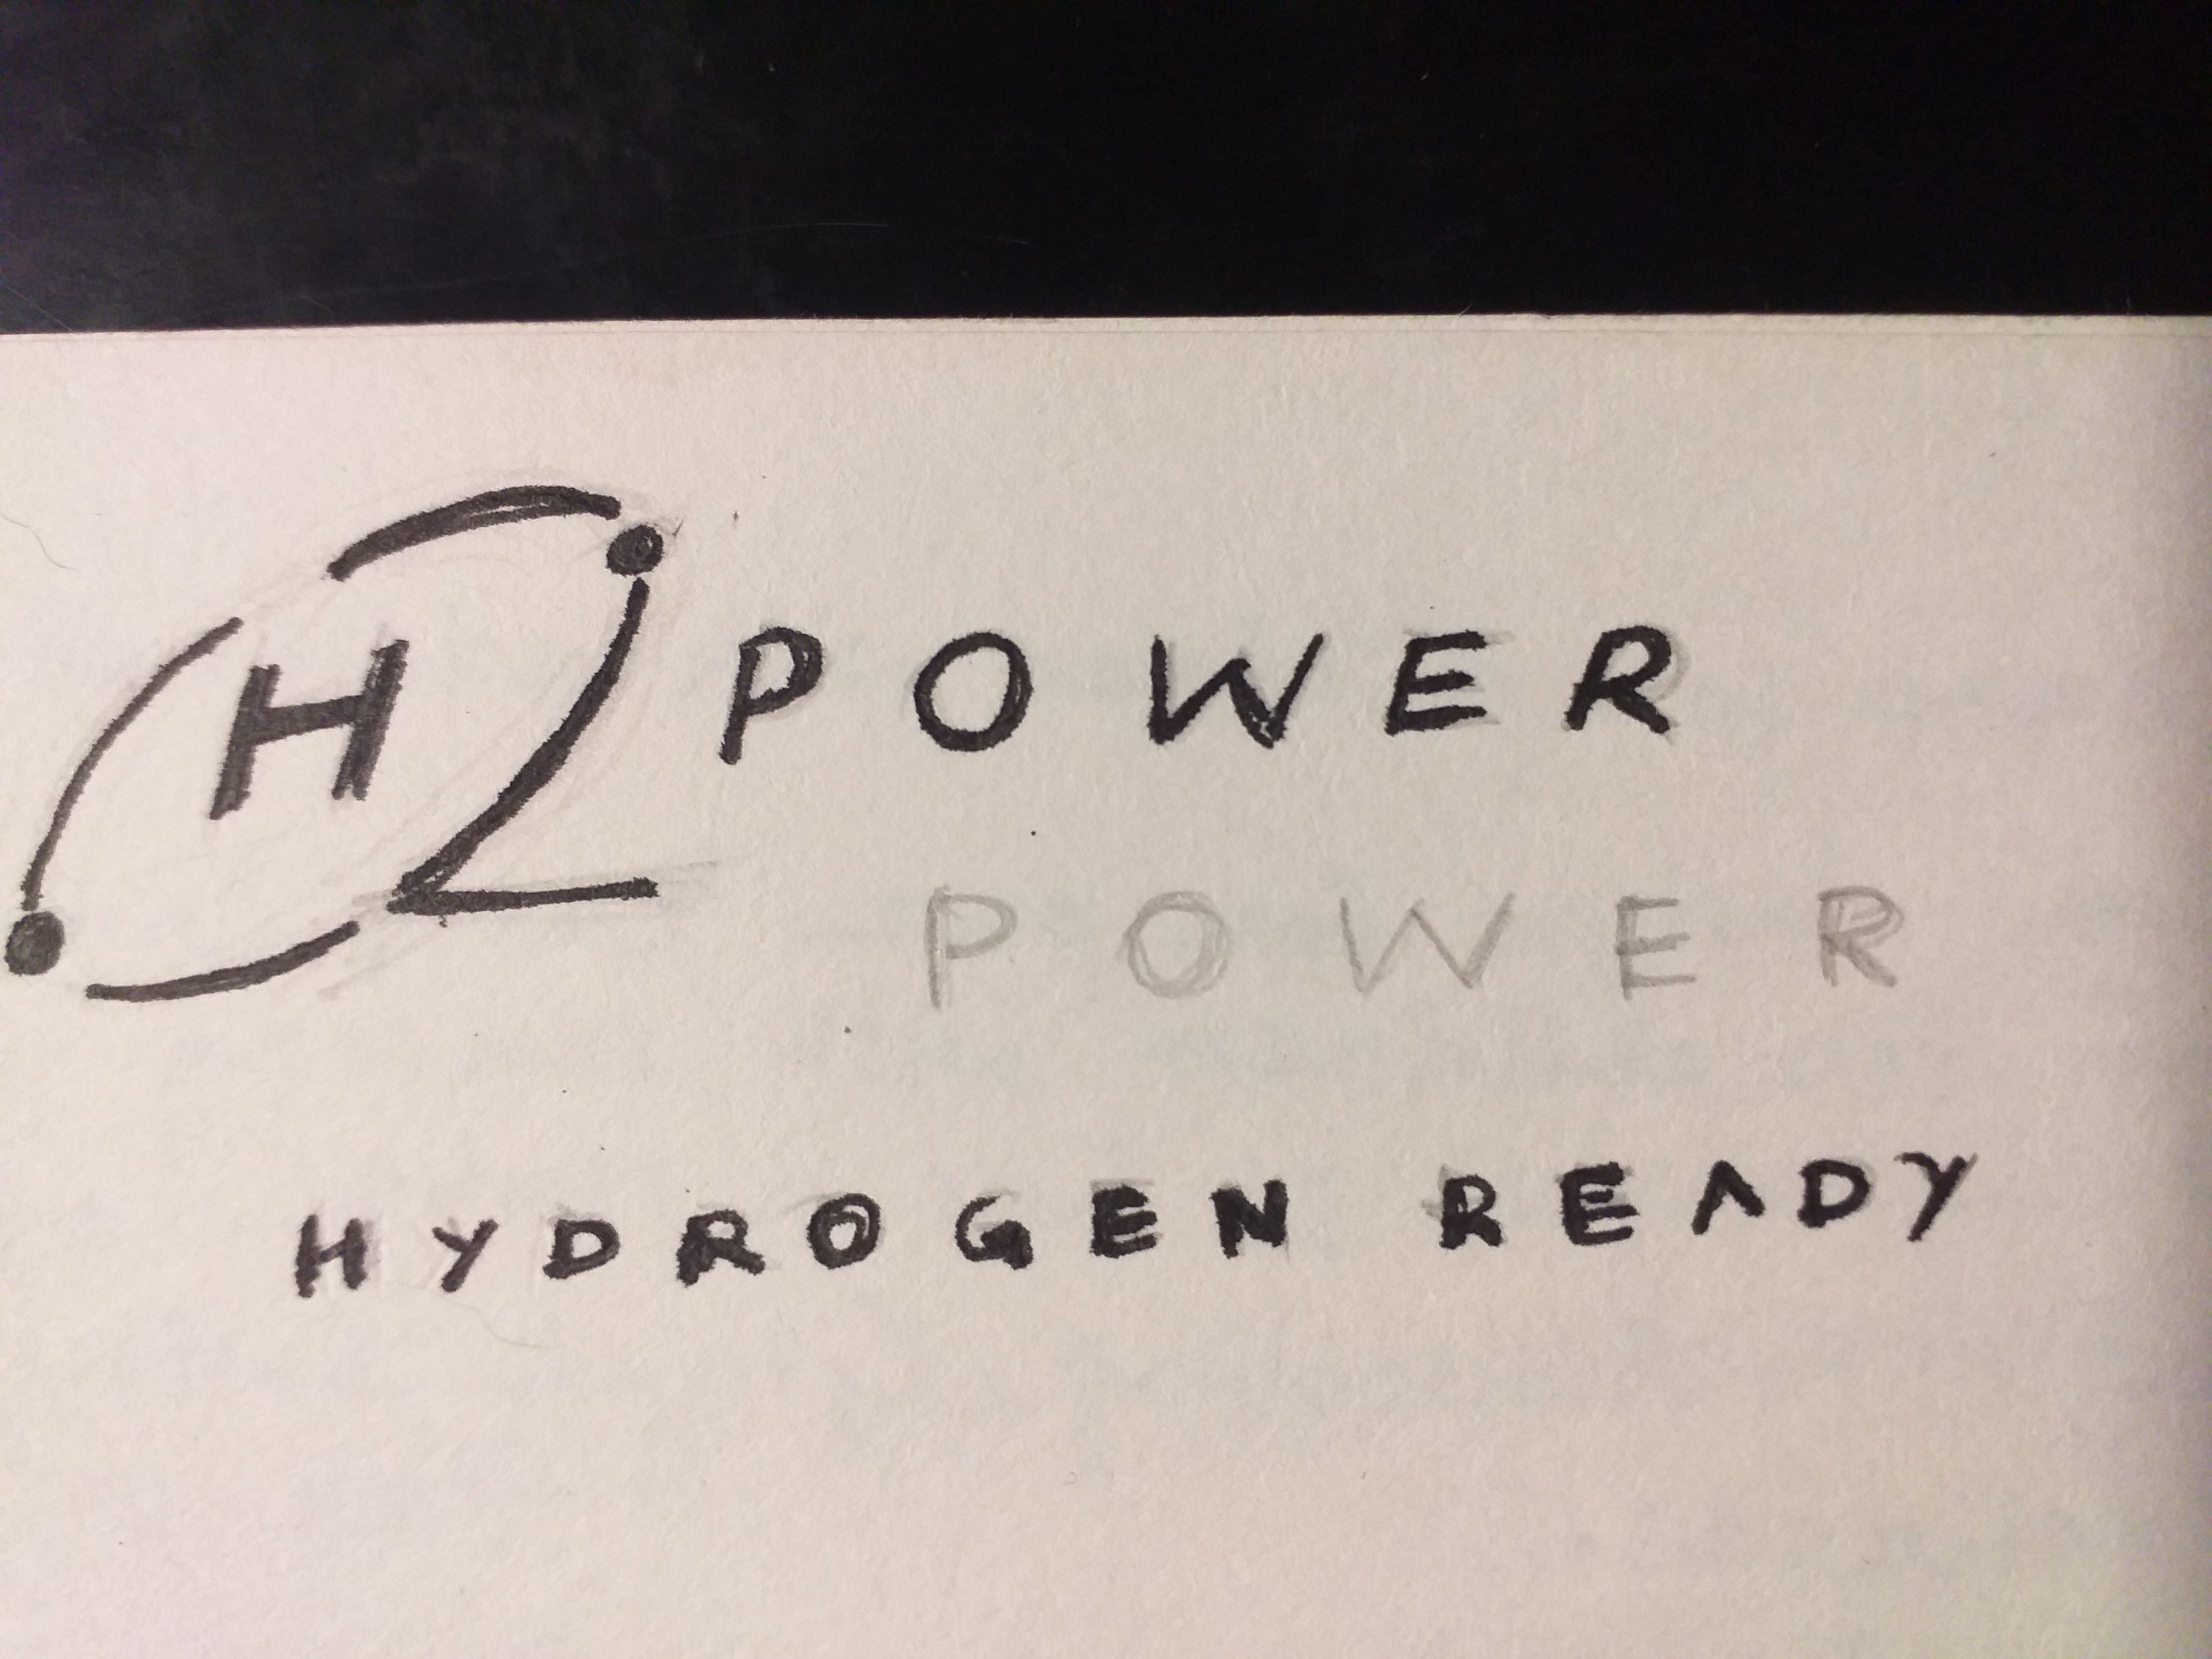 H2 POWER
POWER
HYDROGEN READY